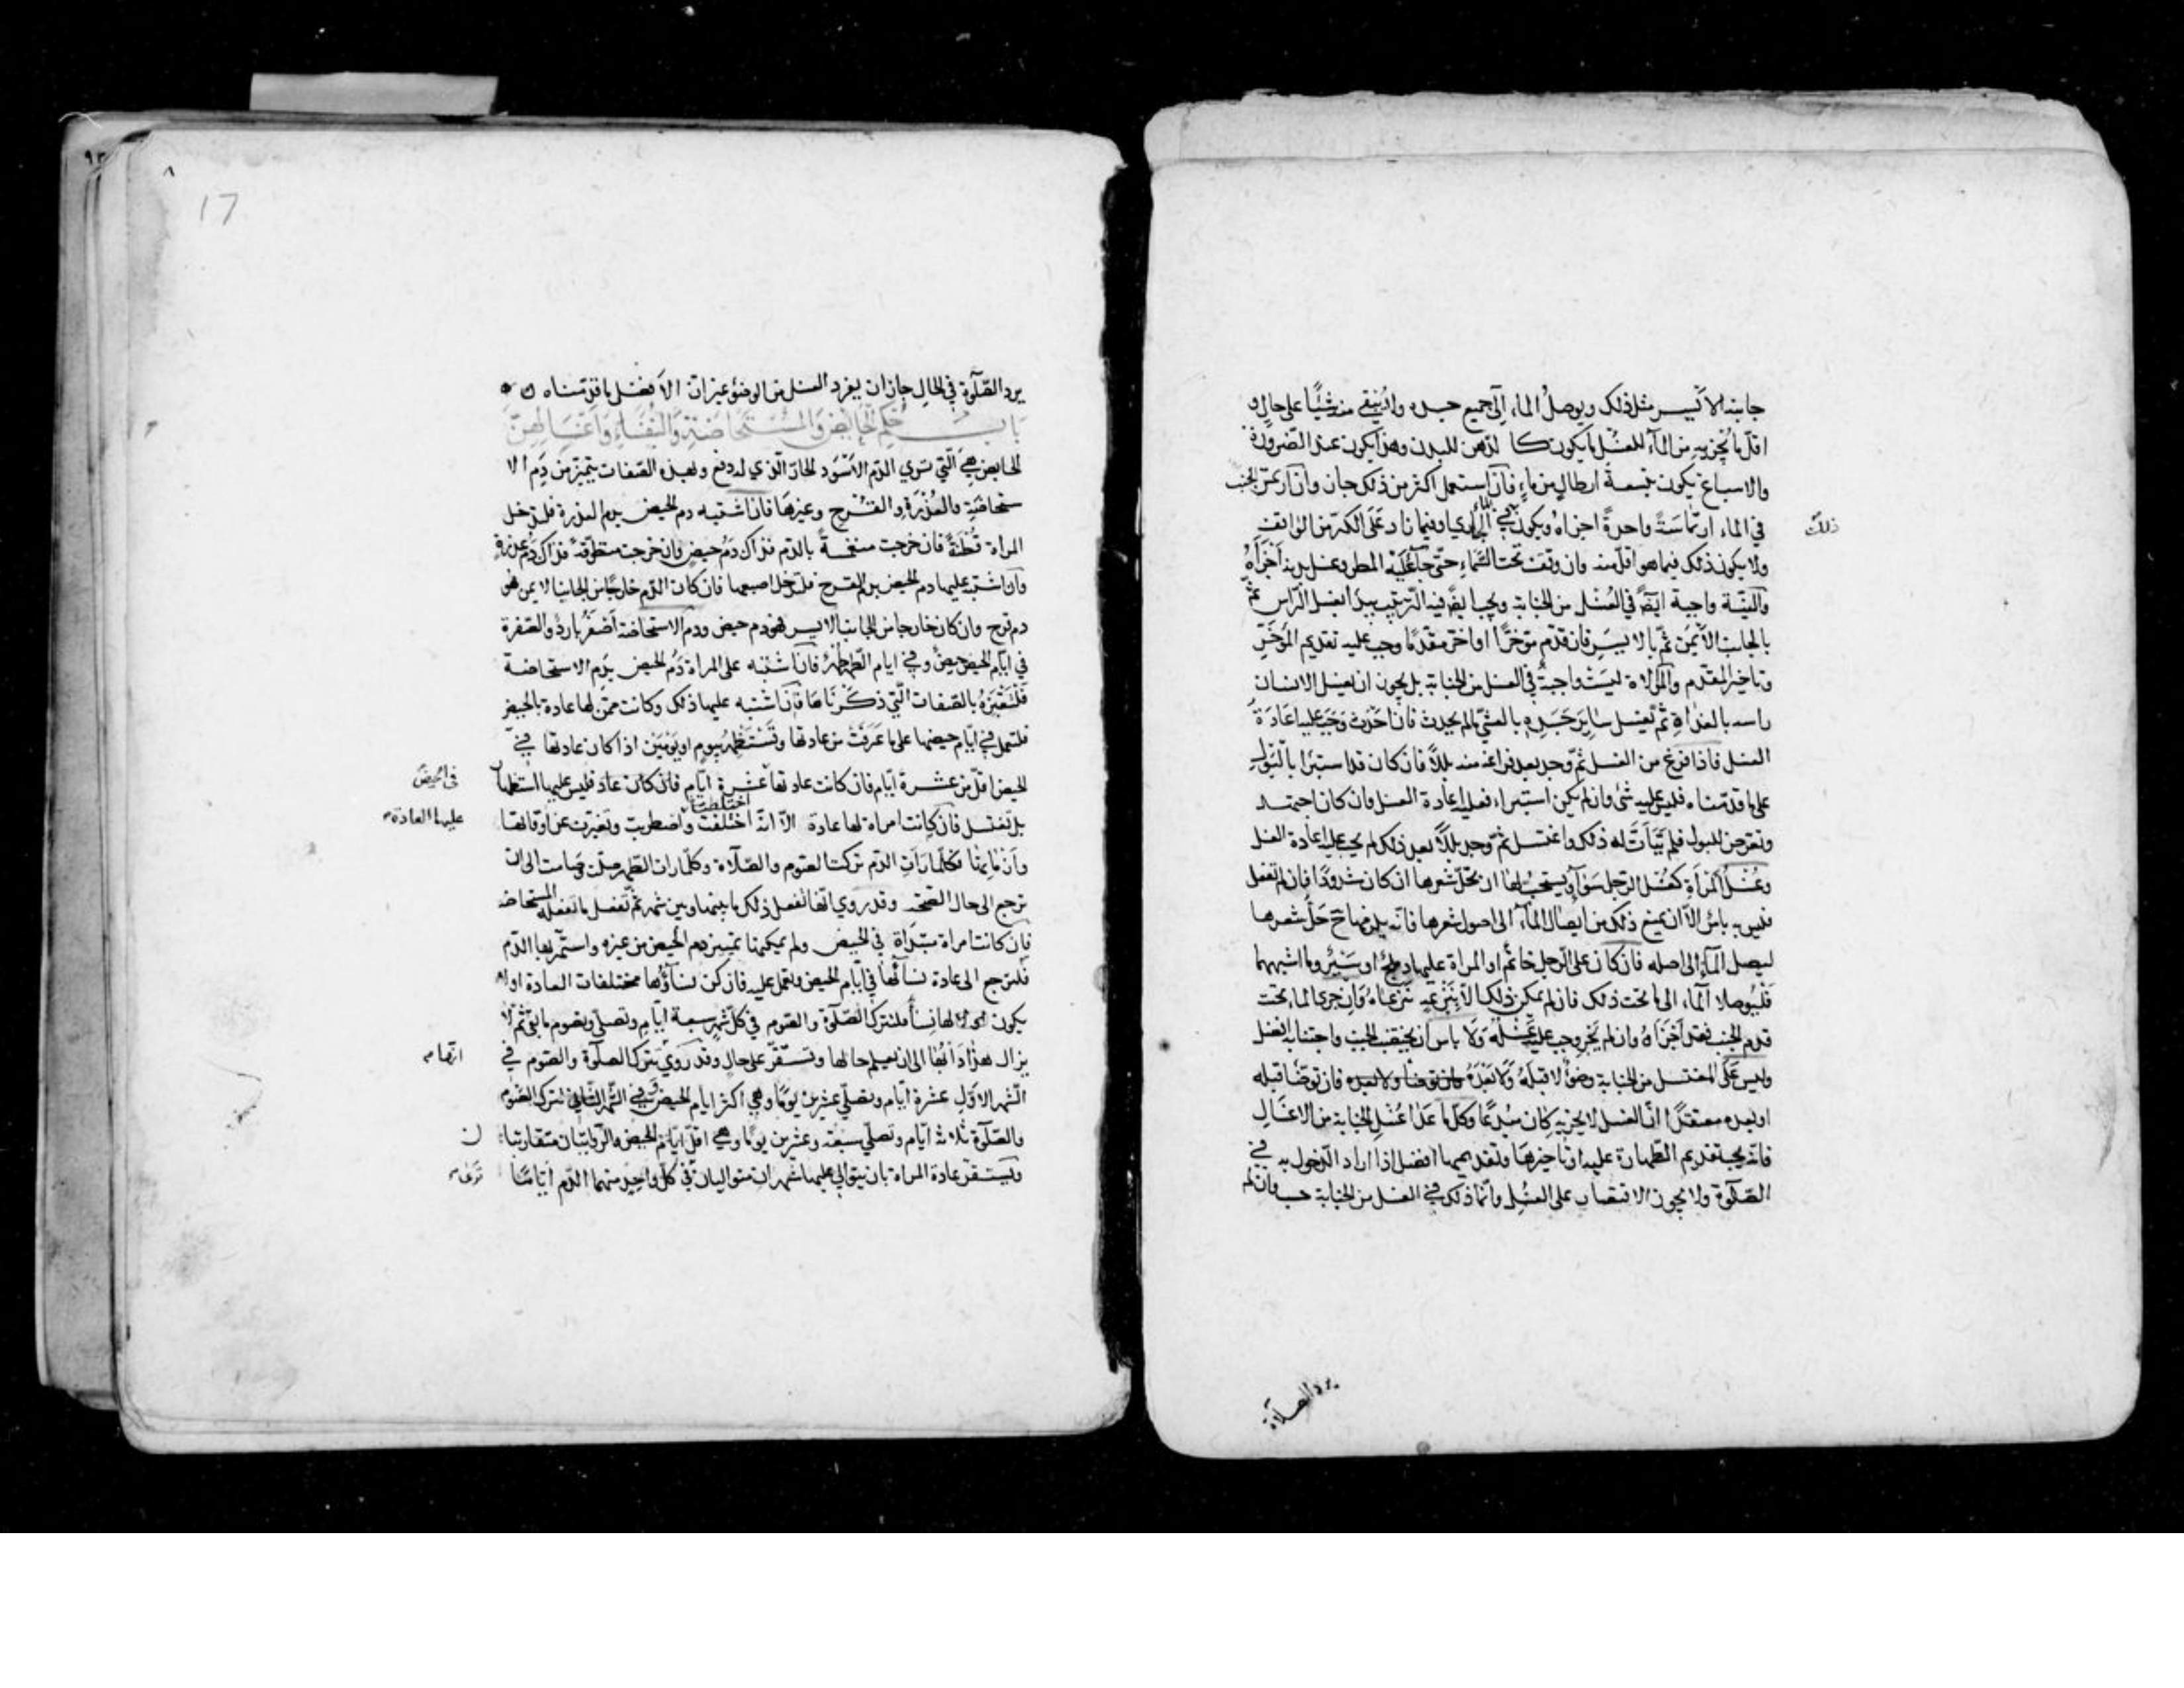 جانبه الأيسر مثل ذلك ويوصل الماء إلى جميع جسده ولا يبقى منه شيئًا على حال و
اقلّ ما يجزيه من الماء للغسل ما يكون كا لدّهن للبدن وهذا يكون عند الضرورة
والاسباغ يكون بتسعة ارطال من ماء فان استعمل اكثر من ذلك جاز وان ارتمس الجنب
في الماء ارتماسَةً واحدةً اجزاهُ ويكون في الجاري او فيما زاد عَلَى الكرّ من الواقف
ذلك
ولا يكون ذلك فيما هو اقلّ منه وان وقف تحت السَّماءِ حتّى جآء عَلَيْه المطر وغسل بدنه اَجْزَاَهُ
والنّيّة واجبة ايضًا في الغُسْل من الجنابة ويجب ايضًا فيه التّرتيب يبدأ بغسل الرّاس ثمّ
بالجانب الأيمَن ثمّ بالايسَرِ فان قدّم مؤخّرًا او اخّر مقدّمًا وجب عليه تقديم المُؤخَّرِ
وتاخير المقدّم والمُوالاة ليسَتْ واجبةً في الغسل من الجنابة بل يجوز ان يغسل الانسان
راسه بالغداةِ ثم يغسل سايرَ جَسَدِهِ بالعشيّ ما لم يحدث فان اَحْدَثَ وَجَبَ عليه اِعَادَةُ
الغسل فاذا فرغ من الغسل ثمّ وجد بعد فراغه منه بللاً فان كان قد استبرَا بالبَولِ
على ما قدّمناه فليس عليه شئ وان لم يكن استبراء فعليه اعادة الغسل وان كان اجتهد
وتعرّض للبول فلم يتَأَتَّ له ذلك واغتسل ثمّ وجد بللاً بعد ذلك لم يجب عليه اعادة الغسل
وغُسْل المَرْاَةِ كغُسْل الرّجل سَوَآءٌ ويستحبّ لها ان تحلّ شعرها ان كان مشدودًا فان لم تفعل
فليس به باسٌ الاّ ان يمنع ذلك من ايصال المآءِ الى اصول شعرها فانّه يلزمها ح حَلُّ شعرها
ليصل المآء الى اصله فان كان على الرّجل خاتم او المراة عليها دملج او سَيْرٌ وما اشبههما
فليُوصلا المآء الى ما تحت ذلك فان لم يمكن ذلك الاّ بِنَزْعِهِ نَزَعَاهُ وَان جرى الماء تحت
قدم الجنب فقد اَجْزَاهُ وان لم يَجْرِ وجب عليه غَسْله وَلَا باس ان يختضب الجنب واجتنابه افضل
وليس عَلَى المغتسل من الجنابة وضوءٌ لا قبلَهُ ولا بَعْدَهُ فان توضّأ قبله
او بعده معتقدًا انّ الغسل لا يجزيه كان مُبْدعًا وكلّ ما عَدَا غُسْلِ الجنابة من الاغسالِ
فانّه يجب تقديم الطّهارة عليها او تاخيرها وتقديمها افضل اذا اراد الدّخول به في
الصّلوة ولا يجوز الاقتصار على الغُسْل وانّما ذلك في الغسل من الجنابة حسب وان لم
يرد الصلاة
١٧
٨
17
يرد الصّلوة في الحال جاز ان يفرد الغسل من الوضؤ غير انّ الأفضل ما قدّمناه
بَابُ حُكْمِ الحَايِضِ وَالمُسْتَحَاضَةِ وَالنُّفَسَاءِ وَاَغْسَالِهِنَّ
الحايض هيَ الّتي ترى الدّم الأسْوَد الحارّ الّذي له دفع وبهذه الصّفات يتميّز من دَم الا
ستحاضَةِ والعُذْرَةِ والقَرْحِ وغيرها فان اشتبه دم الحيض بدم العذرة فلتدخل
المراة قُطْنَةً فان خرجت منغمسةً بالدّم فذاك دَمُ حيضٍ وان خرجت متطوّقةً فذاك دَمُ عذرةٍ
وان اشتبه عليها دم الحيض بدم القرح فلتدخل اصبعها فان كان الدّم خارجًا من الجانب الايمن فهو
دم قرحٍ وان كان خارجا من الجانب الايسر فهو دم حيض ودم الاستحاضة اَصْفَرُ باردٌ والصّفرة
في ايّام الحيض حيضٌ وفي ايام الطّهر طهرٌ فان اشتبه على المراة دَمُ الحيض بدَمِ الاستحاضة
فَلْتَعْتَبِرْهُ بالصّفات الّتي ذكَرْنَاهَا فان اشتبه عليها ذلك وكانت ممّن لها عادة بالحيض
فلتعمل في ايّام حيضها على ما عَرَفَتْ من عادتها وتَسْتَظْهِرُ بيومٍ او يَوْمَيْن اذا كان عادتها في
الحيض اقلّ من عشرة ايّام فان كانت عادتها عَشَرَةَ ايّام فليس عليها استظهار
في الحيض
بل تغتسل فان كانت امراة لها عادة الاّ انّه اختلفت واضطربت وتغيّرت عن اوقاتها
اختلطت
عليها العادة
وازمانها فكلّما رَاَتِ الدّم تركت الصّوم والصّلاة وكلّما رات الطّهر صلّت وصامت الى ان
ترجع الى حال الصّحّة وقد روي انّها تفعل ذلك ما بينها وبين شهر ثمّ تفعل ما تفعله المستحاضة
فان كانت امراة مبتدَاَة في الحيض ولم يمكنها تمييز دم الحيض من غيره واستمرّ بها الدّم
فلترجع الى عادة نسآئها في ايّام الحيض وتعمل عليه فان كنّ نسآؤُها مختلفات العادة او لا
يكون لها نسآء فلتترك الصّلَوة والصّوم في كلّ شهر سبعة ايّامٍ وتصلّي وتصوم ما بقي ثمّ لا
يزال هذا دَابُها الى ان تعلم حالها وتستقرّ على حالٍ وقد رُويَ تترك الصلَوة والصّوم في
انّها
الشّهر الاوّل عشرة ايّام وتصلّي عشرين يومًا وهي اكثر ايام الحيض وفي الشّهر الثّاني تترك الصّوم
والصّلوة ثلاثة ايّام وتصلّي سبعة وعشرين يومًا وهي اقلّ ايّام الحيض والرّوايتان متقاربتا
ن
وتستقرّ عادة المراة بان يتوالى عليها شهران متواليان في كلّ واحد منهما الدّم ايّامًا
ترى